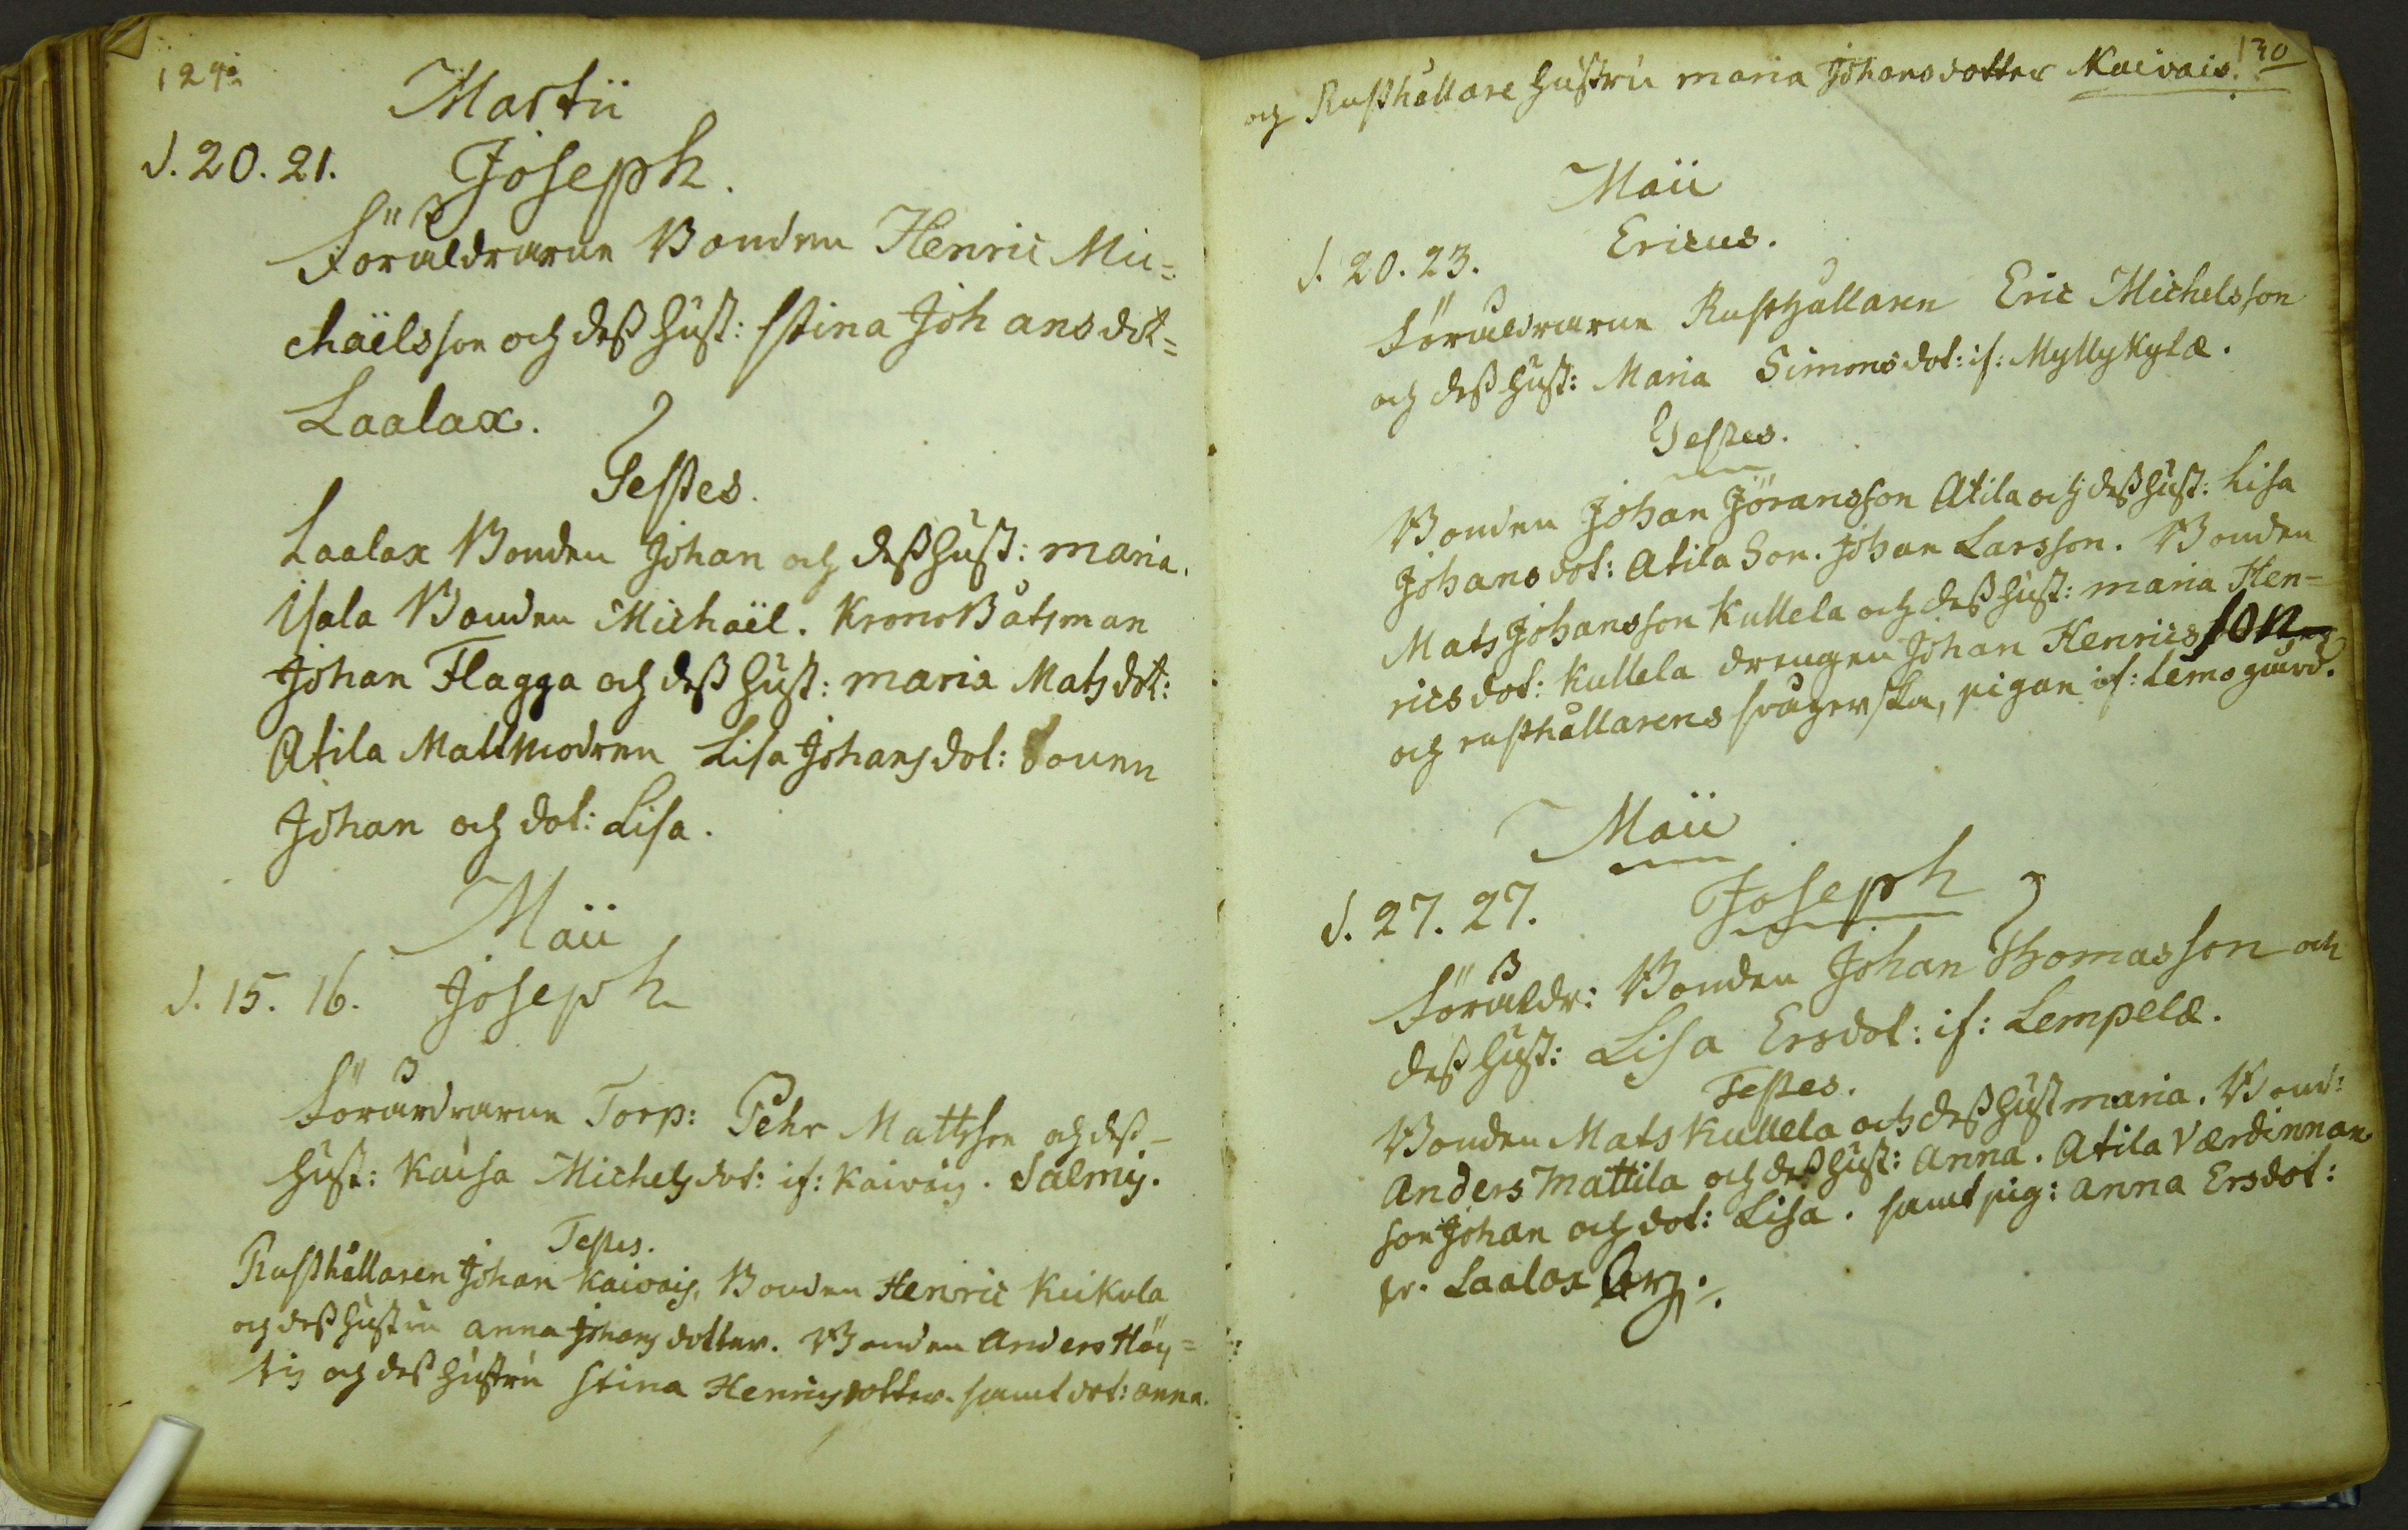 129
Martii
d. 20. 21. Joseph.
Föräldrarne Bonden Henric Mic=
chaëlsson och dess Hust: Stina Johansdot=
Laalax.
Testes.
Laalax Bonden Johan och dess Hust: Maria.
Isala Bonden Michaël. Krono Båtsman
Johan Flagga och dess Hust: Maria Matsdot:
Atila Matmodren Lisa Johansdot: Sonen
Johan och dot: Lisa.
Maii
d. 15. 16. Joseph
Föräldrarne Torp: Pehr Mattsson och dess
Hust: Kaisa Michelsdot: if: Kaivais. Salmis.
Testes.
Rusthållaren Johan Kaivais, Bonden Henric Kuikula
och dess Hustru Anna Johansdotter. Bonden Anders Höy=
tis och dess Hustru Stina Henricsdotter. samt dot: Anna.
130
och Rusthållare Hustru Maria Johansdotter Kaivais.
Maii
d. 20. 23. Ericus.
Föräldrarne Rusthållaren Eric Michelsson
och dess Hust: Maria Simonsdot: if: Myllykylæ.
Testes.
Bonden Johan Jöransson Atila och dess Hust: Lisa
Johansdot: Atila Son. Johan Larsson. Bonden
Mats Johansson Kullela och dess Hust: Maria Hen=
ricsdot: Kullela drengen Johan Henricsson
och rusthållarens svägerska, pigan if: Lemo gård.
Maii
d. 27. 27. Joseph
Föräldr: Bonden Johan Thomasson och
dess Hust: Lisa Ersdot: if: Lempelæ.
Testes.
Bonden Mats Kullela och dess Hust Maria. Bond:
Anders Mattila och dess Hust: Anna. Atila Værdinnan
son Johan och dot: Lisa. samt pig: Anna Ersdot:
fr. Laalax